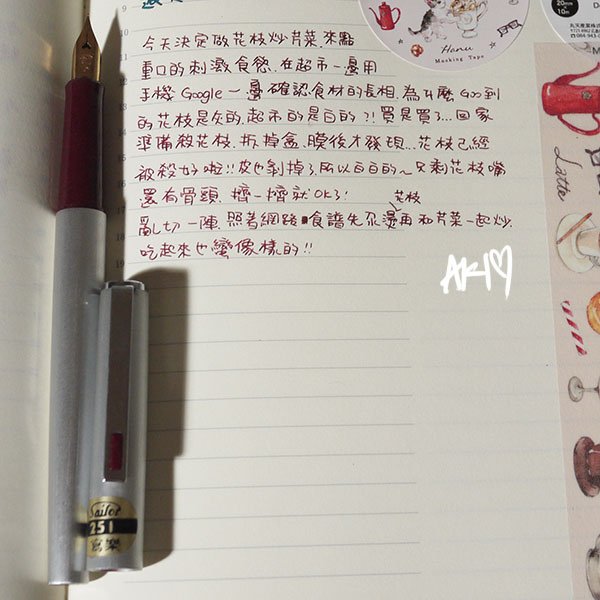 今天決定做花枝炒芹菜,來點
重口的刺激食慾,在超市一邊用
手機 Google 一邊確認食材的長相,為什麼 Goo到
的花枝是灰的,超市的是白的?!買是買了...回家
準備殺花枝,拆掉盒、膜後才發現...花枝己經
被殺好啦!!皮也剝掉了,所以白白的~只剩花枝嘴
還有骨頭,擠一擠就OK了!
花枝
亂切一陣,照著網路食譜先汆燙再和芹菜一起炒,
吃起來也蠻像樣的!!
AKI♡
Hanu
Masking Tape
20mm
10m
Latte
Sailor
251
寫樂
9
10
11
12
13
14
15
16
17
18
19